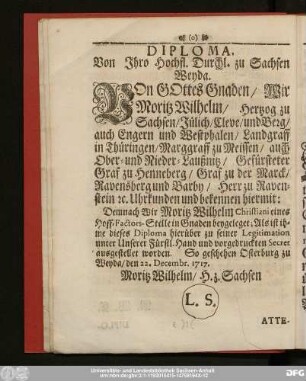 (o)
DIPLOMA.
Von Ihro Hochfl. Durchl. zu Sachsen
Weyda.
VOn GOttes Gnaden/ Wir
Moritz Wilhelm/ Hertzog zu
Sachsen/ Jülich/ Cleve/ und Berg/
auch Engern und Westphalen/ Landgraff
in Thüringen/ Marggraff zu Meissen/ auch
Ober- und Nieder-Laußnitz/ Gefürsteter
Graf zu Henneberg/ Graf zu der Marck/
Ravensberg und Barby/ Herr zu Raven-
stein ꝛc. Uhrkunden und bekennen hiermit:
Demnach Wir Moritz Wilhelm Christiani eines
Hoff-Factors-Stelle in Gnaden beygeleget; Als ist ih-
me dieses Diploma hierüber zu seiner Legitimation
unter Unserer Fürstl. Hand und vorgedruckten Secret
ausgestellet worden. So geschehen Osterburg zu
Weyda/ den 22. Decembr. 1717.
Moritz Wilhelm/ H. z. Sachsen
L. S.
ATTE-
Universitäts- und Landesbibliothek Sachsen-Anhalt
DFG